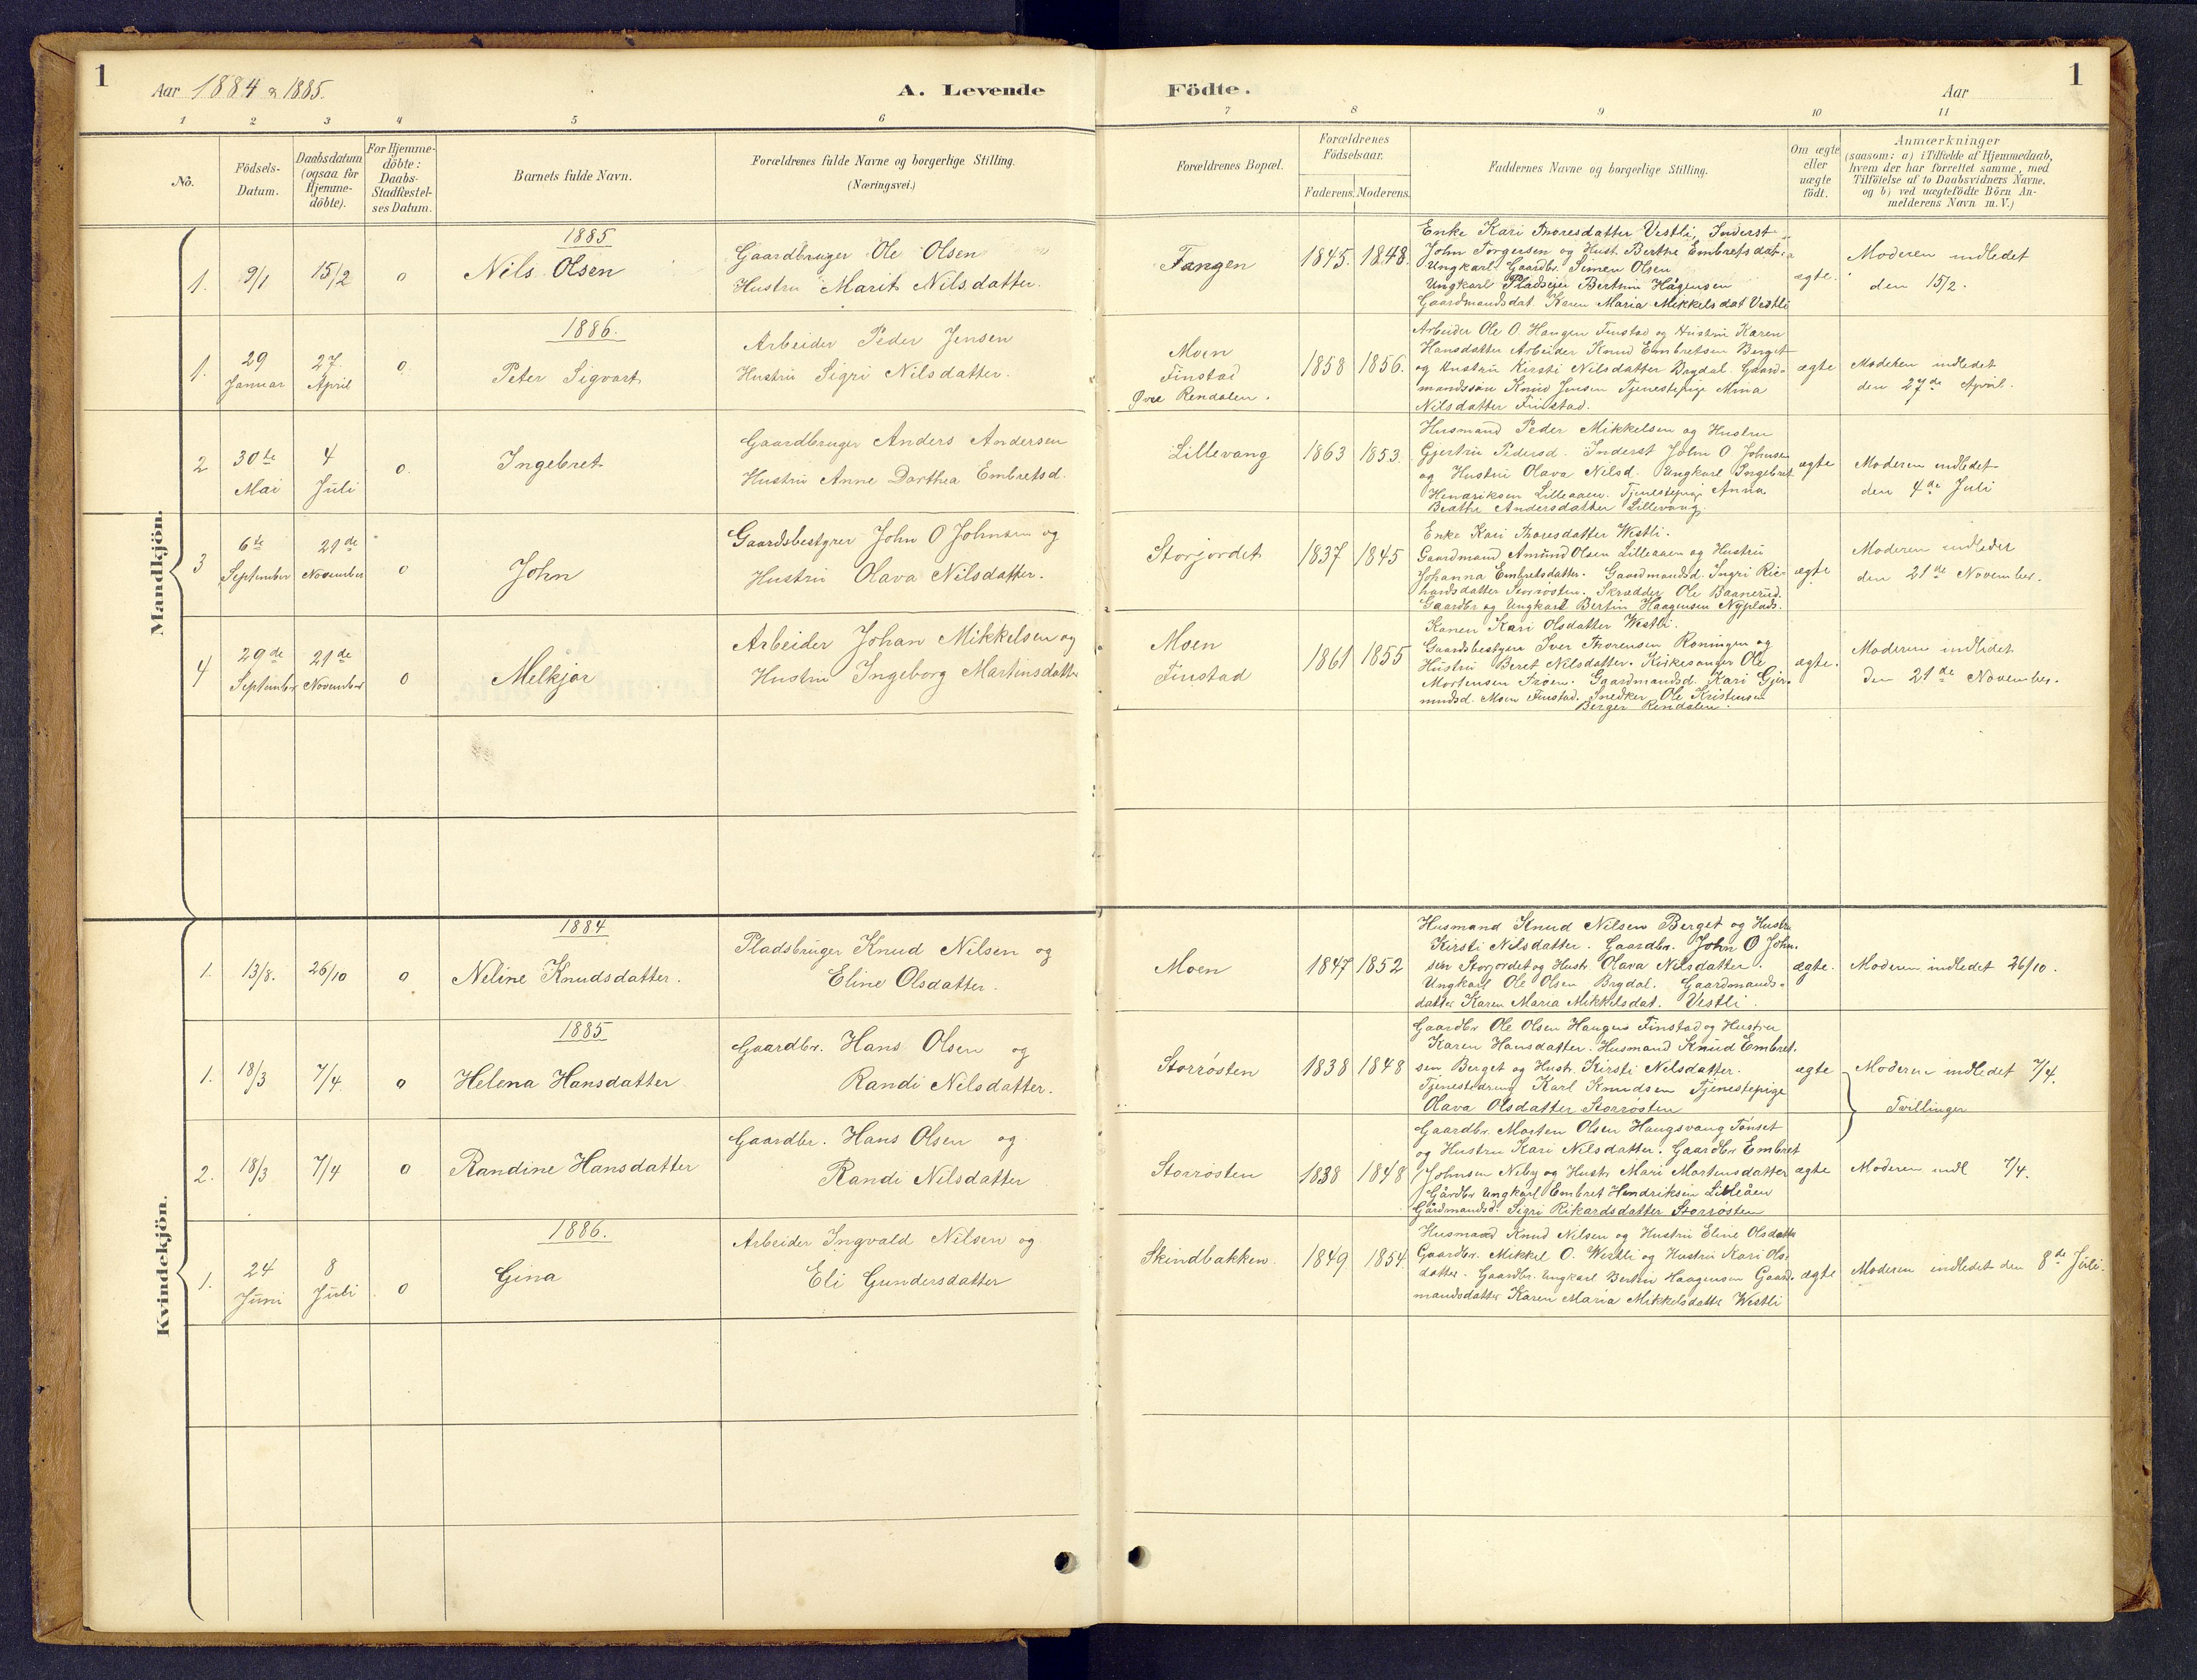 1
Aar 1884 & 1885.
A. Levende
Födte.
Aar
1
1 2 3 4 5 6 7 8 9 10 11
No.
Födsels-
Datum.
Daabsdatum
(ogsaa for
Hjemme-
döbte).
For Hjemme-
döbte:
Daabs-
Stadfæstel-
ses Datum.
Barnets fulde Navn.
Forældrenes fulde Navne og borgerlige Stilling.
(Næringsvei.)
Forældrenes Bopæl.
Forældrenes
Födselsaar.
Faderens. Moderens.
Faddernes Navne og borgerlige Stilling.
Om ægte
eller
uægte
födt.
Anmærkninger
(saasom: a) i Tilfælde af Hjemmedaab,
hvem der har forrettet samme, med
Tilföielse af to Daabsvidners Navne,
og b) ved uægtefödte Börn An-
melderens Navn m. V.)
Mandkjön.
1885
1. 9/1 15/2 0 Nils Olsen
Gaardbruger Ole Olsen
Hustru Marit Nilsdatter.
Fangen
1845. 1848.
Enke Kari Thoresdatter Vestli, Inderst
John Torgersen og Hust. Berthe Embretsdat.
Ungkarl Gaardbr. Simen Olsen
Ungkarl Pladseier Bertinu Hågensen
Gaardmandsdat. Karen Maria Mikkelsdat Vestli
ægte.
Moderen indledet
den 15/2.
1886.
1. 29
Januar
27.
April
0. Peter Sigvart
Arbeider Peder Jensen
Hustru Sigri Nilsdatter.
Moen
Finstad
Øvre Rendalen.
1858 1856.
Arbeider Ole O. Haugen Finstad og Hustru Karen
Hansdatter Arbeider Knud Embretsen Berget
og Hustru Kirsti Nilsdatter Brydal. Gaard-
mandssøn Knud Jensen Tjenestepige Mina
Nilsdatter Finstad.
ægte
Moderen indledet
den 27de April.
2 30te
Mai
4
Juli
0. Ingebret
Gaardbruger Anders Andersen
Hustru Anne Dorthea Embretsd.
Lillevang
1863 1853.
Husmand Peder Mikkelsen og Hustru
Gjertru Pedersd. Inderst John O Johnsen
og Hustru Olava Nilsd. Ungkarl Ingebret
Hendriksen Lilleaaen. Tjenestepige Anna
Beathe Andersdatter Lillevang.
ægte
Moderen indledet
den 4de Juli
3 6te
September
21de
November
0 John
Gaardsbestyrer John O Johnsen og
Hustru Olava Nilsdatter.
Storjordet
1837 1845
Enke Kari Thoresdatter Westli.
Gaardmand Amund Olsen Lilleaaen og Hustru
Johanna Embretsdatter. Gaardmandsd. Ingri Ric-
hardsdatter Storrøsten. Skrædder Ole Baanerud.
Gaardbr og Ungkarl Bertin Haagensen Nyplads.
ægte
Moderen indledet
den 21de November.
4 29de
September
21de
November
0 Melkjor
Arbeider Johan Mikkelsen og
Hustru Ingeborg Martinsdatter
Moen
Finstad
1861 1855
Konen Kari Olsdatter Westli.
Gaardsbestyrer Iver Thorensen Roningen og
Hustru Beret Nilsdatter. Kirkesanger Ole
Mortensen Frøen. Gaardmandsd. Kari Gjer-
mundsd. Moen Finstad. Snedker Ole Kristensen
Berger Rendalen.
ægte.
Moderen indledet
den 21de November.
Kvindekjön.
1884
1. 13/8. 26/10 0 Neline Knudsdatter.
Pladsbruger Knud Nilsen og
Eline Olsdatter.
Moen
1847 1852
Husmand Knud Nilsen Berget og Hustru
Kirsti Nilsdatter. Gaardbr. John O John.
sen Storjordet og Hustr. Olava Nilsdatter.
Ungkarl Ole Olsen Brydal. Gaardmands-
datter Karen Maria Mikkelsdat. Vestli.
ægte.
Moderen indledet 26/10.
1885
1. 18/3 7/4 0 Helena Hansdatter
Gaardbr. Hans Olsen og
Randi Nilsdatter.
Storrösten
1838 1848
Gaardbr Ole Olsen Haugen Finstad og Hustru
Karen Hansdatter. Husmand Knud Embret.
sen Berget og Hustr. Kirsti Nilsdatter.
Tjenestedreng Karl Knudsen Tjenestepige
Olava Olsdatter Storrøsten
ægte
Moderen indledet 7/4.
Tvillinger
2. 18/3 7/4 0 Randine Hansdatter
Gaardbr. Hans Olsen og
Randi Nilsdatter
Storrösten
1838 1848
Gaardbr. Morten Olsen Haugsvang Tønset
og Hustru Kari Nilsdatter. Gaardbr Embret
Johnsen Neby og Hustr. Mari Mortensdatter
Gårdbr Ungkarl Embret Hendriksen Lilleåen
Gårdmandsd. Sigri Rikardsdatter Storrösten
ægte
Moderen indl 7/4.
1886.
1. 24
Juni
8
Juli
0 Gina
Arbeider Ingvald Nilsen og
Eli Gundersdatter
Skindbakken.
1849 1854.
Husmand Knud Nilsen og Hustru Eline Olsdatter
Gaardbr. Mikkel O. Westli og Hustru Kari Ols-
datter. Gaardbr. Ungkarl Bertin Haagensen Gaard-
mandsdatter Karen Maria Mikkelsdatter Westli
ægte
Moderen indledet den 8de Juli.